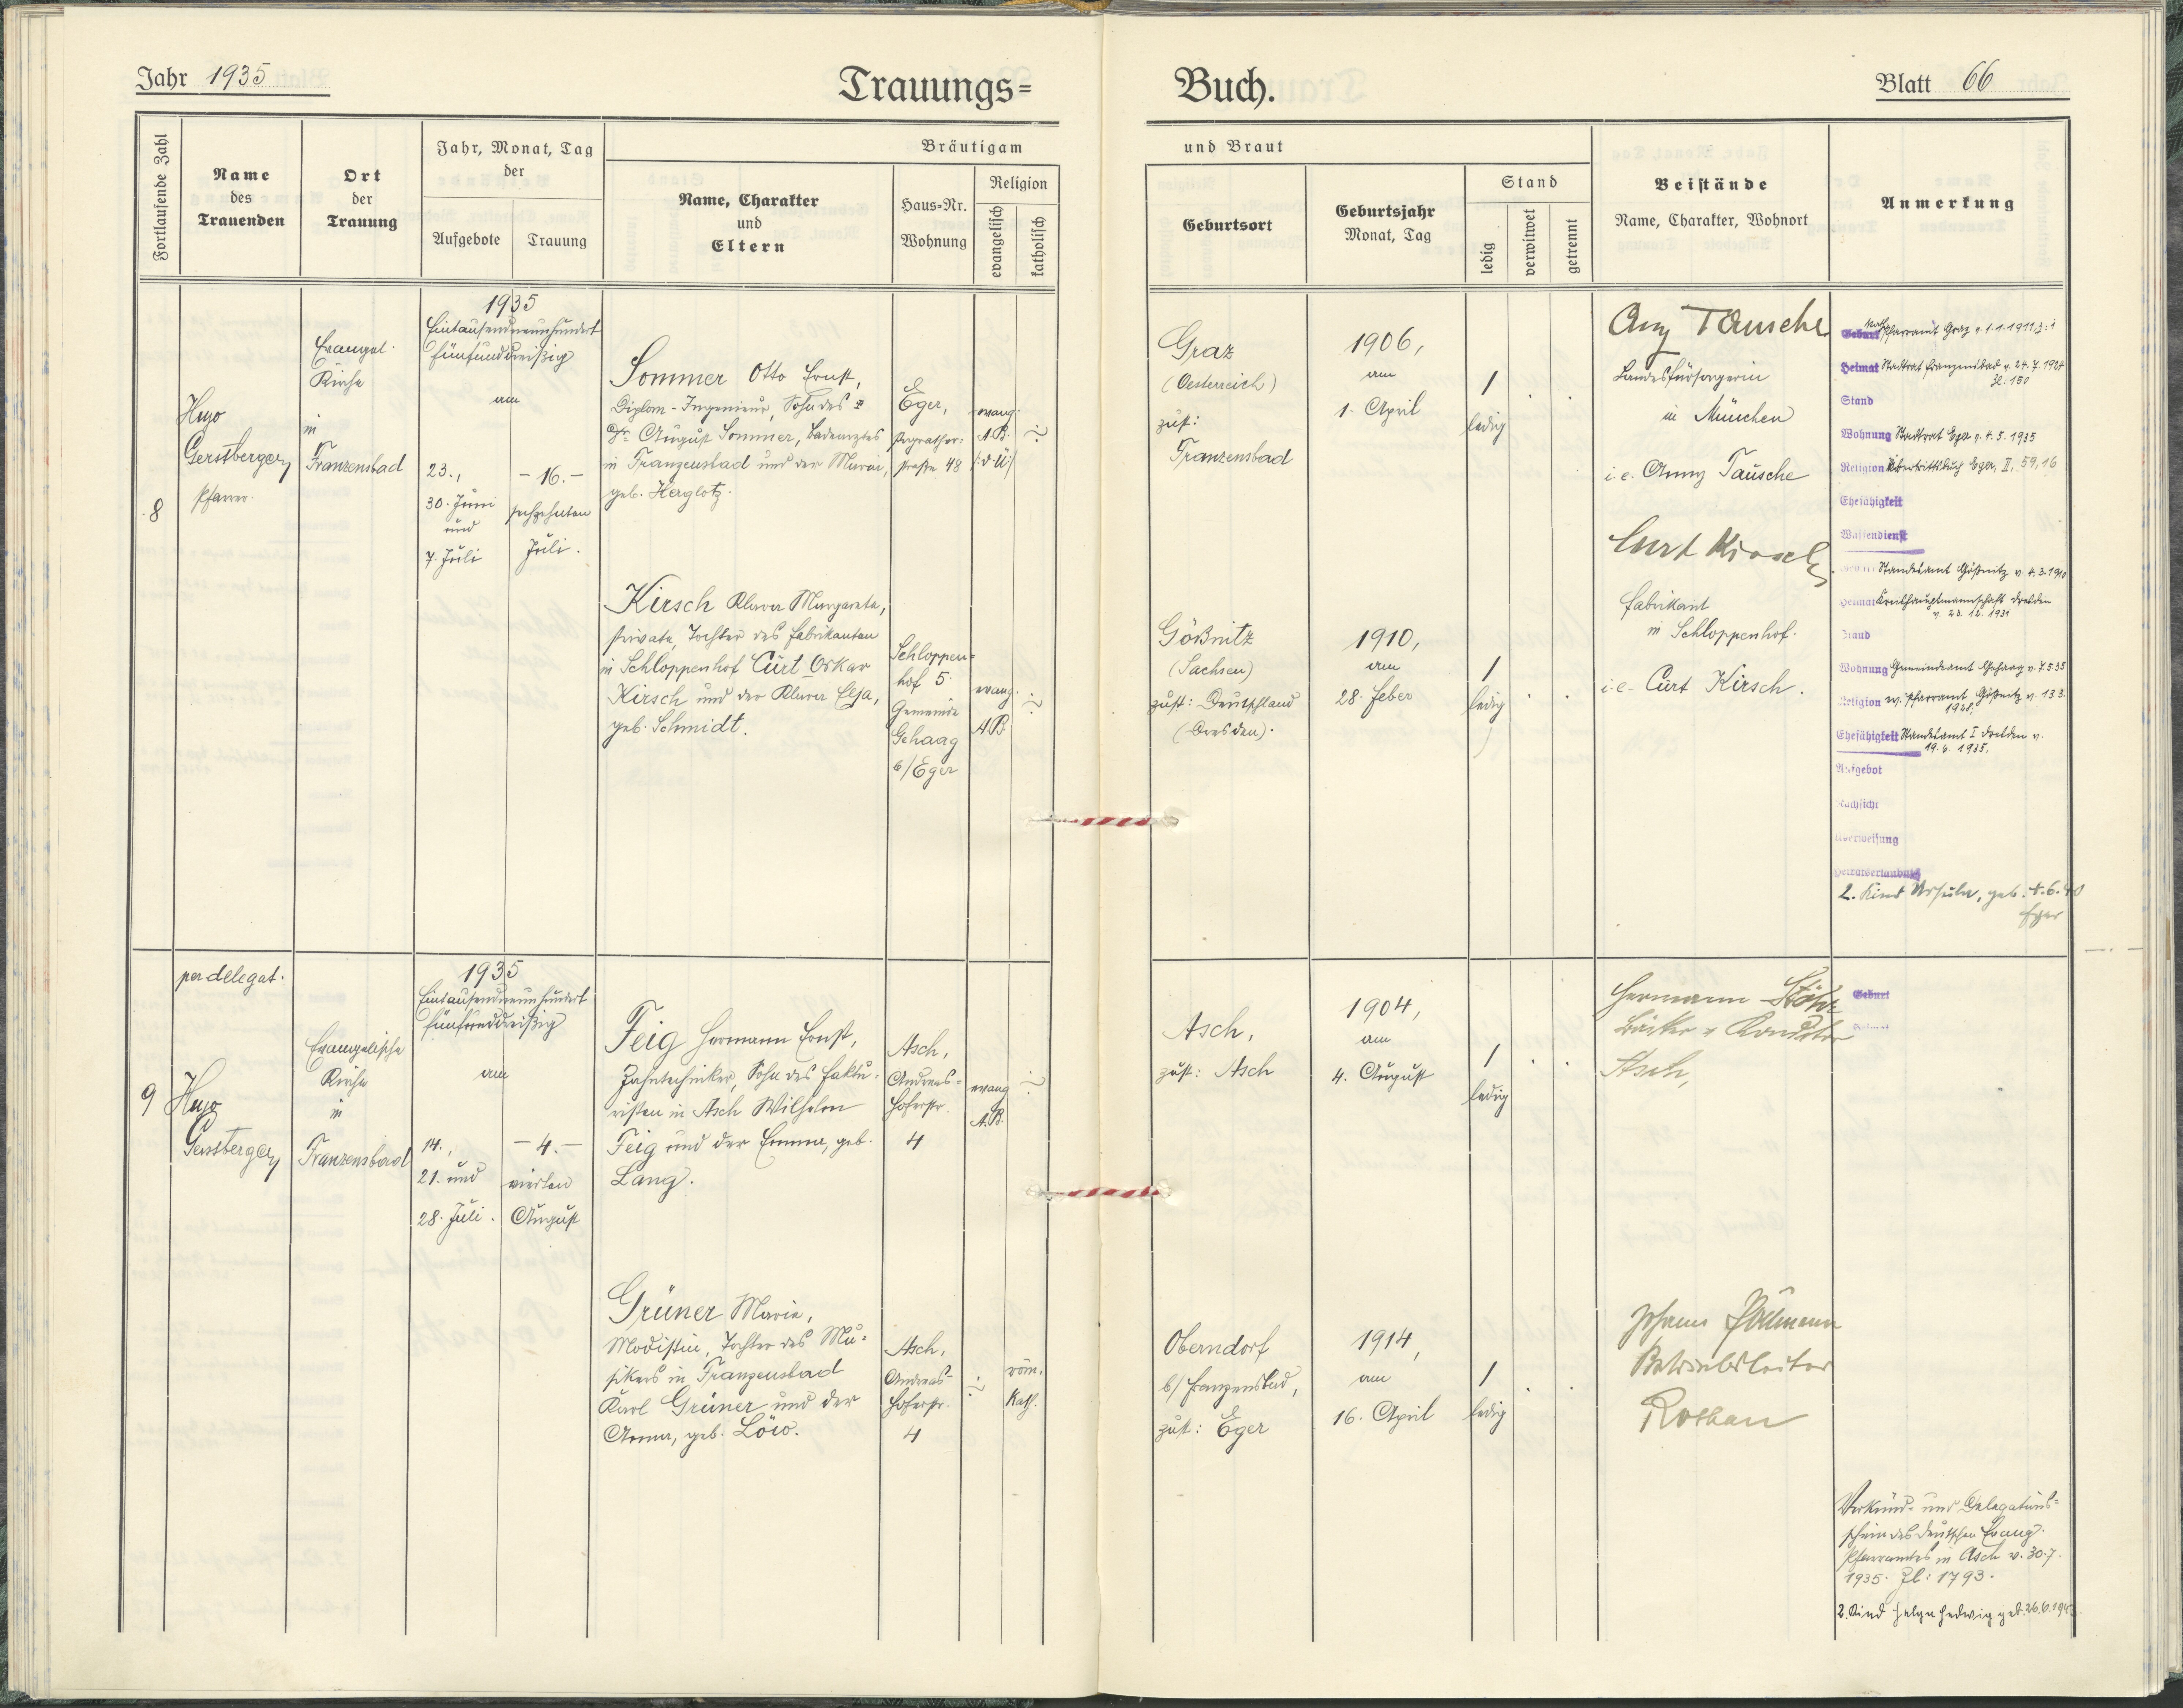 Jahr 1935
Trauungs=
Buch.
Blatt 66
Fortlaufende Zahl
Name
des
Trauenden
Ort
der
Trauung
Jahr, Monat, Tag
der
Aufgebote
Trauung
Bräutigam
und Braut
Name, Charakter
und
Eltern
Haus=Nr.
Wohnung
Religion
evangelisch
katholisch
Geburtsort
Geburtsjahr
Monat, Tag
Stand
ledig
verwitwet
getrennt
Beistände
Name, Charakter, Wohnort
Anmerkung
8
Hugo
Gerstberger
Pfarrer.
Evangel.
Kirche
in
Franzensbad
1935
Eintausendneunhundert
fünfunddreißig
am
23.,
30. Juni
und
7. Juli
- 16. -
sechzehnten
Juli.
Sommer Otto Ernst,
Diplom-Ingenieur, Sohn des
Dr. August Sommer, Badearztes
in Franzensbad und der Maria,
geb. Herglotz.
Eger,
straße 48
evang.
A.B.
Graz
(Oesterreich)
zust:
Franzensbad
1906,
am
1. April
1
ledig
Any Tausche
Landesfürsorgerin
in München
i.e. Anny Tausche
Pfarramt Graz v. 1.1.1911, 3:1
Heimat Stadtrat Franzensbad v. 24.7.1924
Zl: 150
Stand
Wohnung Stadtrat Eger v. 4.5.1935
Religion Übertrittsbuch Eger, II, 59, 16
Ehefähigkeit
Waffendienst
Kirsch Klara Margareta,
Private, Tochter des Fabrikanten
in Schloppenhof Curt Oskar
Kirsch und der Klara Elsa,
geb. Schmidt.
Schloppen=
hof 5.
Gemeinde
Gehaag
b/Eger
evang.
A.B.
Gößnitz
(Sachsen)
zust: Deutschland
(Dresden).
1910,
am
28. Feber
1
ledig
Curt Kirsch
Fabrikant
in Schloppenhof.
i.e. Curt Kirsch.
Standesamt Gößnitz v. 4.3.1910
Heimat Kreishauptmannschaft Dresden
v. 23.12.1931
Stand
Wohnung Gemeindeamt Gehaag v. 7.5.35
Religion ev. Pfarramt Gößnitz v. 13.3.
1928,
Ehefähigkeit Standesamt I Dresden v.
19.6.1935.
Aufgebot
Nachsicht
Überweisung
Heiratserlaubnis
2. Kind Ursula, geb. 4.6.40
Eger
9
per delegat.
Hugo
Gerstberger
Evangelische
Kirche
in
Franzensbad
1935
Eintausendneunhundert
fünfunddreißig
am
14.,
21. und
28. Juli.
- 4. -
vierten
August
Feig Hermann Ernst,
Zahntechniker, Sohn des Faktu-
risten in Asch Wilhelm
Feig und der Emma, geb.
Lang.
Asch,
Andreas=
Hoferstr.
4
evang
A.B.
Asch,
zust: Asch
1904,
am
4. August
1
ledig
Hermann Stöhr
Bäcker u Konditor
Asch,
Geburt
Heimat
Grüner Marie,
Modistin, Tochter des Mu=
sikers in Franzensbad
Karl Grüner und der
Anna, geb. Löw.
Asch,
Andreas-
Hoferstr.
4
röm.
kath.
Oberndorf
b/ Franzensbad,
zust: Eger
1914,
am
16. April
1
ledig
Johann
Betriebsleiter
Rossbach
Verkünd- und Delegations=
schein des Deutschen Evang.
Pfarramtes in Asch v. 30.7.
1935. Zl: 1793.
2. Kind Helga Hedwig geb. 26.6.194